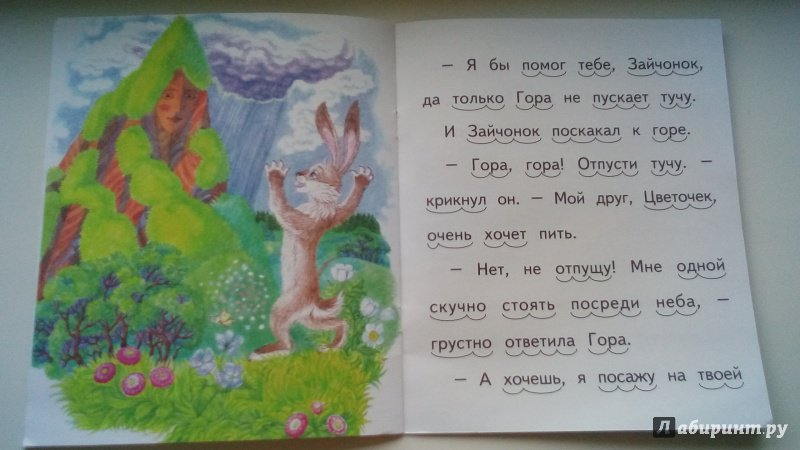 — Я бы помог тебе, Зайчонок,
да только Гора не пускает тучу.
И Зайчонок поскакал к горе.
— Гора, гора! Отпусти тучу. —
крикнул он. — Мой друг, Цветочек,
очень хочет пить.
— Нет, не отпущу! Мне одной
скучно стоять посреди неба, —
грустно ответила Гора.
— А хочешь, я посажу на твоей
Лабиринт.ру